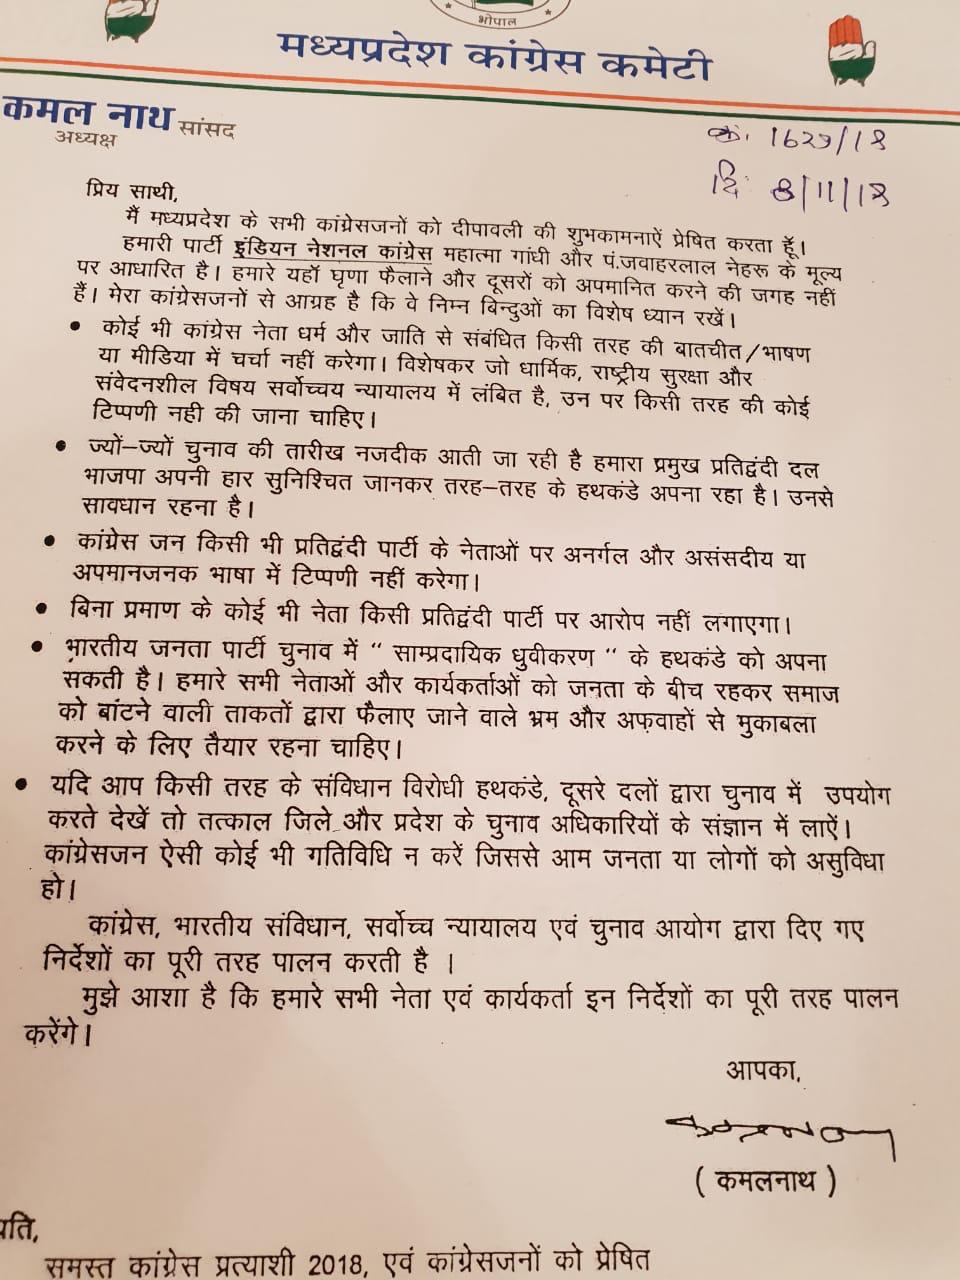 भोपाल
मध्यप्रदेश कांग्रेस कमेटी
कमल नाथ सांसद
अध्यक्ष
क्र. 1629/18
दि: 8/11/18
प्रिय साथी,
मैं मध्यप्रदेश के सभी कांग्रेसजनों को दीपावली की शुभकामनाऐं प्रेषित करता हूँ।
हमारी पार्टी इंडियन नेशनल कांग्रेस महात्मा गांधी और पं.जवाहरलाल नेहरू के मूल्य
पर आधारित है। हमारे यहॉ घृणा फैलाने और दूसरों को अपमानित करने की जगह नहीं
हैं। मेरा कांग्रेसजनों से आग्रह है कि वे निम्न बिन्दुओं का विशेष ध्यान रखें।
• कोई भी कांग्रेस नेता धर्म और जाति से संबंधित किसी तरह की बातचीत/भाषण
या मीडिया में चर्चा नहीं करेगा। विशेषकर जो धार्मिक, राष्ट्रीय सुरक्षा और
संवेदनशील विषय सर्वोच्चय न्यायालय में लंबित है, उन पर किसी तरह की कोई
टिप्पणी नही की जाना चाहिए।
• ज्यों–ज्यों चुनाव की तारीख नजदीक आती जा रही है हमारा प्रमुख प्रतिद्वंदी दल
भाजपा अपनी हार सुनिश्चित जानकर तरह–तरह के हथकंडे अपना रहा है। उनसे
सावधान रहना है।
• कांग्रेस जन किसी भी प्रतिद्वंदी पार्टी के नेताओं पर अनर्गल और असंसदीय या
अपमानजनक भाषा में टिप्पणी नहीं करेगा।
• बिना प्रमाण के कोई भी नेता किसी प्रतिद्वंदी पार्टी पर आरोप नहीं लगाएगा।
• भारतीय जनता पार्टी चुनाव में “ साम्प्रदायिक धुवीकरण “ के हथकंडे को अपना
सकती है। हमारे सभी नेताओं और कार्यकर्ताओं को जनता के बीच रहकर समाज
को बांटने वाली ताकतों द्वारा फैलाए जाने वाले भ्रम और अफवाहों से मुकाबला
करने के लिए तैयार रहना चाहिए।
• यदि आप किसी तरह के संविधान विरोधी हथकंडे, दूसरे दलों द्वारा चुनाव में उपयोग
करते देखें तो तत्काल जिले और प्रदेश के चुनाव अधिकारियों के संज्ञान में लाऐं।
कांग्रेसजन ऐसी कोई भी गतिविधि न करें जिससे आम जनता या लोगों को असुविधा
हो।
कांग्रेस, भारतीय संविधान, सर्वोच्च न्यायालय एवं चुनाव आयोग द्वारा दिए गए
निर्देशों का पूरी तरह पालन करती है ।
मुझे आशा है कि हमारे सभी नेता एवं कार्यकर्ता इन निर्देशों का पूरी तरह पालन
करेंगे।
आपका,
कमलनाथ
( कमलनाथ )
प्रति,
समस्त कांग्रेस प्रत्याशी 2018, एवं कांग्रेसजनों को प्रेषित